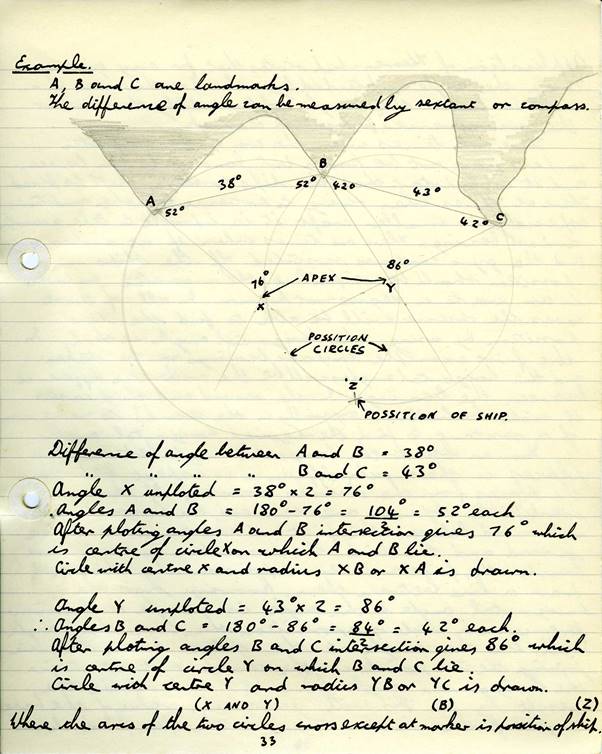 Example.
A, B and C are landmarks.
The difference of angle can be measured by sextant or compass.
B
A 38° 43°
52° 52° 42° C
42°
86°
76° APEX Y
X
POSSITION
CIRCLES
'Z'
POSSITION OF SHIP.
Difference of angle between A and B = 38°
" " " " B and C = 43°
Angle X unploted = 38° x 2 = 76°
∴ Angles A and B = 180° - 76° = 104°/2 = 52° each
After ploting angles A and B intersection gives 76° which
is centre of circle X on which A and B lie.
Circle with centre X and radius XB or XA is drawn.
Angle Y unploted = 43° x 2 = 86°
∴ Angles B and C = 180° - 86° = 84°/2 = 42° each.
After ploting angles B and C intersection gives 86° which
is centre of circle Y on which B and C lie.
Circle with centre Y and radius YB or YC is drawn.
(X AND Y) (B) (Z)
Where the arcs of the two circles cross except at marker is possition of ship.
33